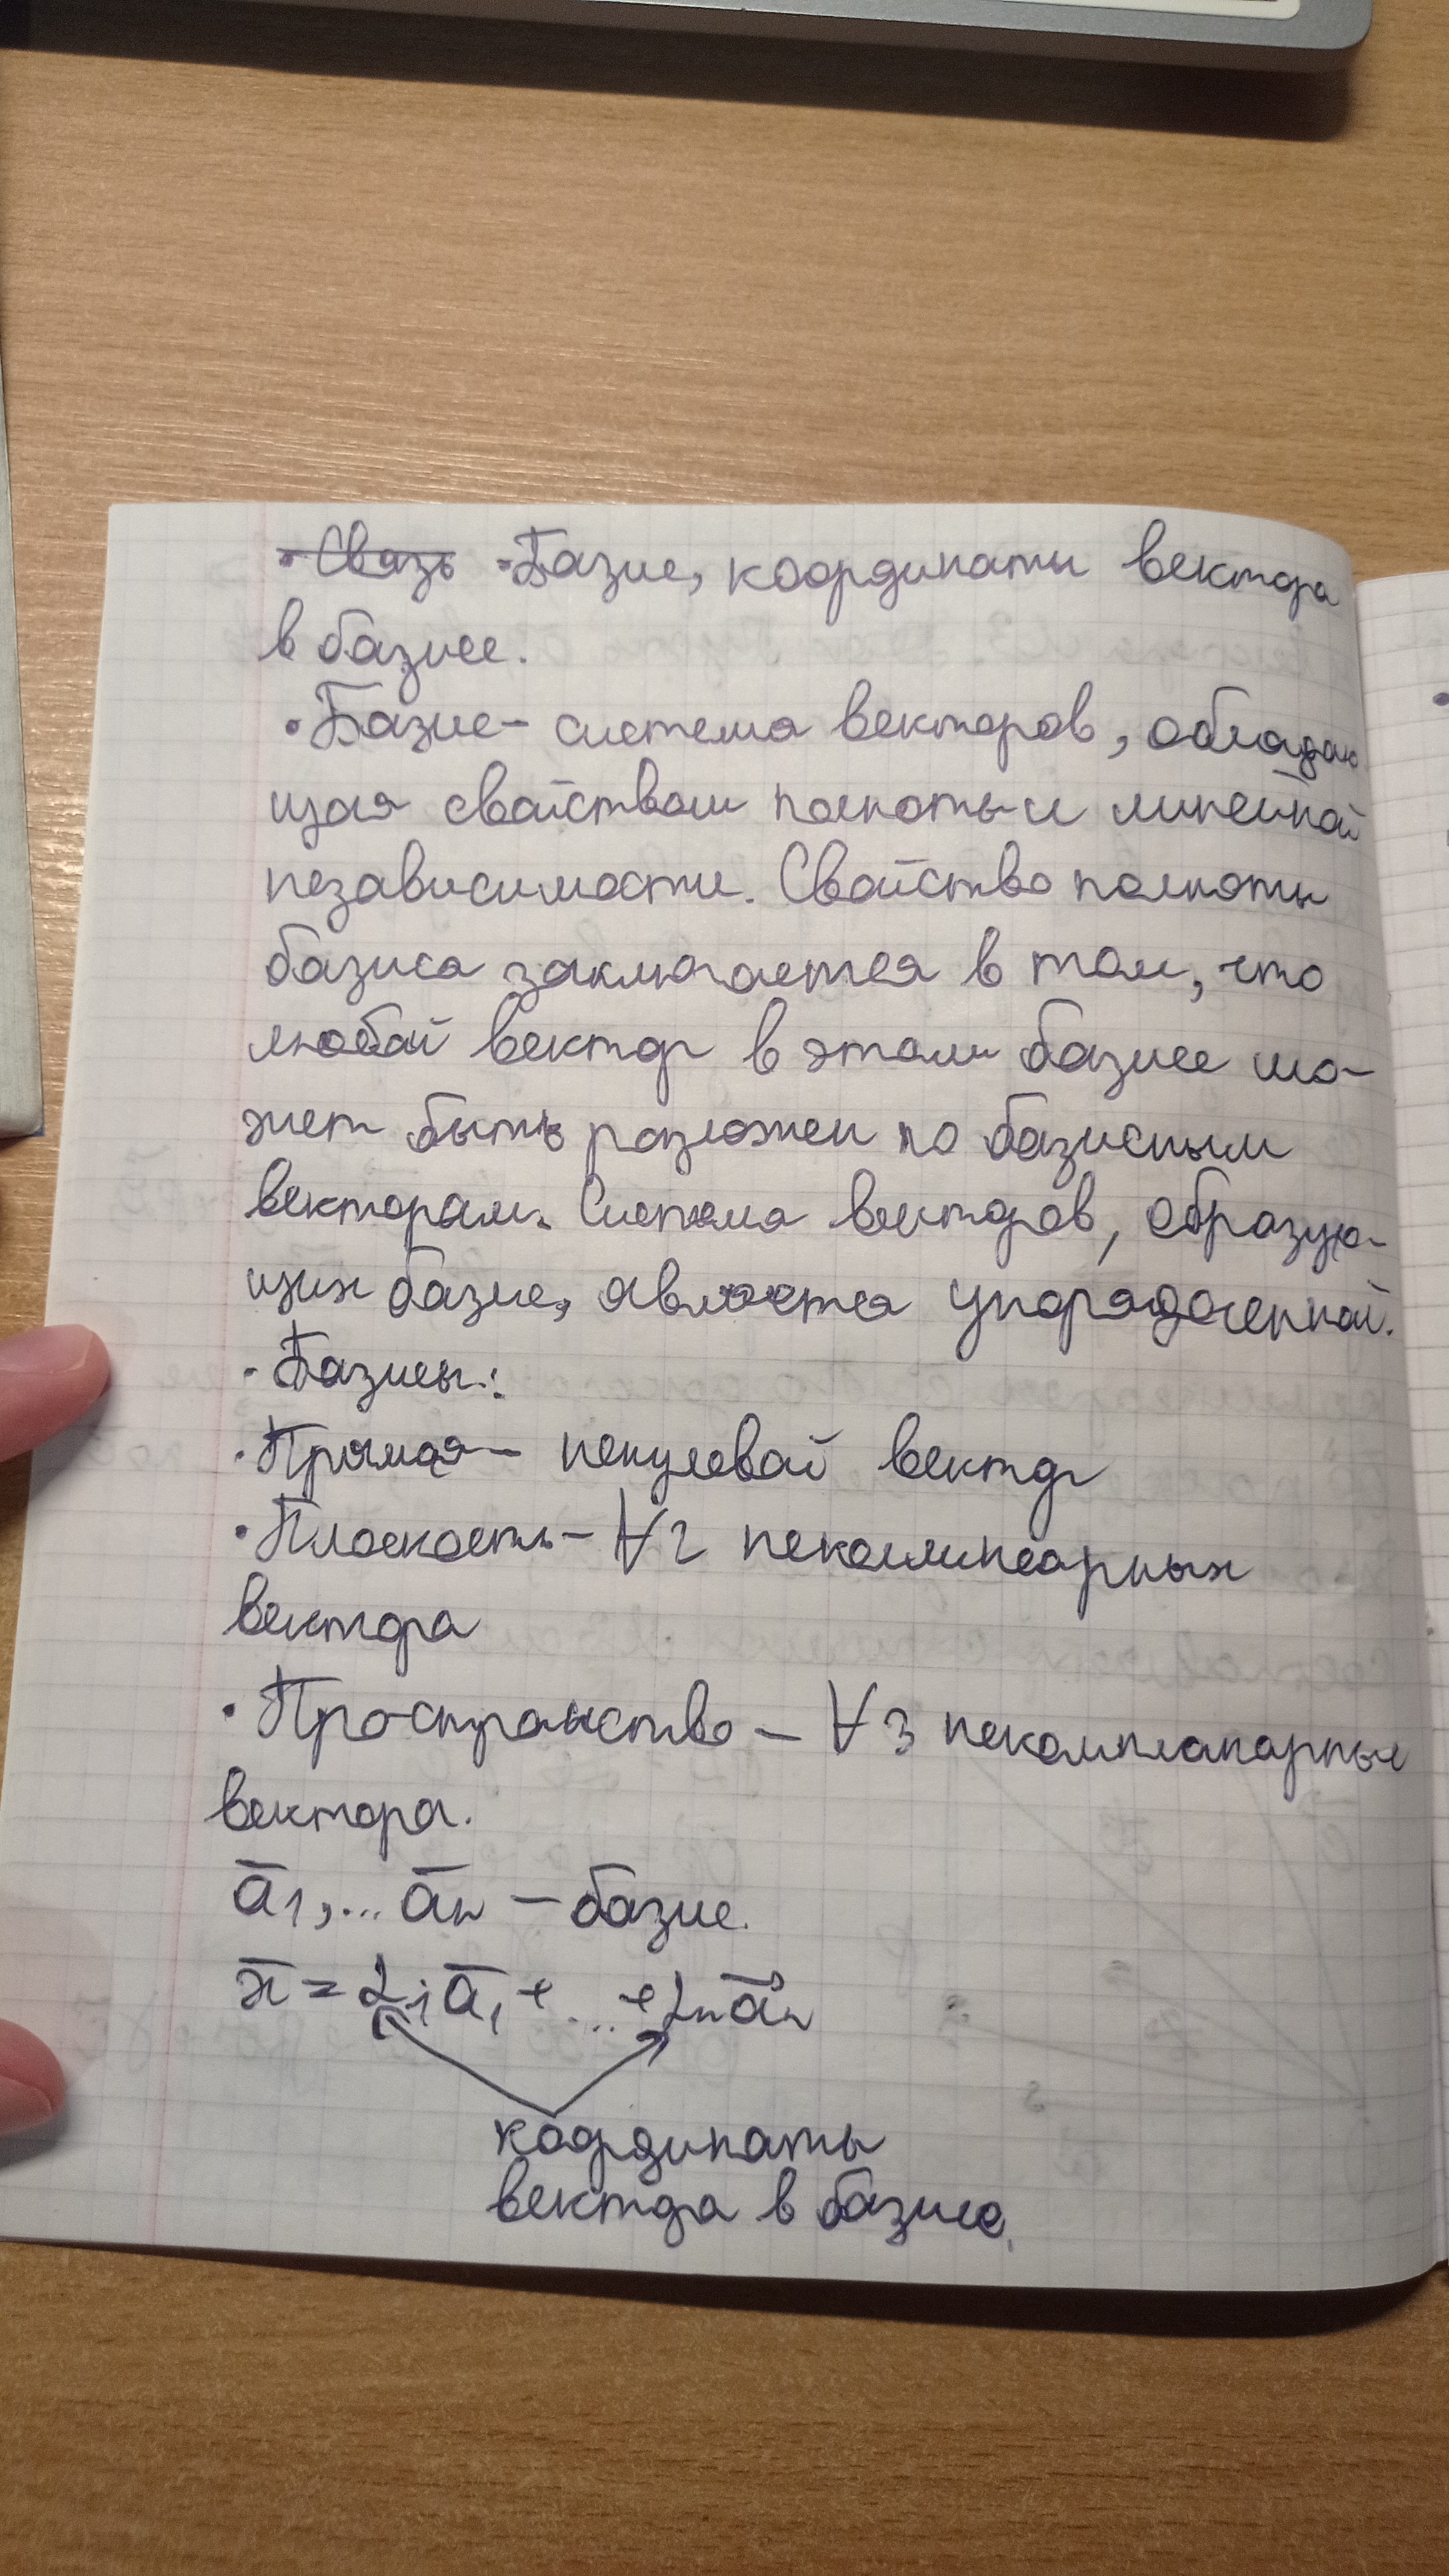 • Связь • Базис, координаты вектора
в базисе.
• Базис – система векторов, обладаю
щая свойством полноты и линейной
независимости. Свойство полноты
базиса заключается в том, что
любой вектор в этом базисе мо-
жет быть разложен по базисным
векторам. Система векторов, образую-
щих базис, является упорядоченной.
• Базисы:
• Прямая – ненулевой вектор
• Плоскость – ∀ 2 неколлинеарных
вектора
• Пространство – ∀ 3 некомпланарные
вектора.
a̅₁,... a̅ₙ – базис.
x̅ = α₁a̅₁ + ... + αₙa̅ₙ
координаты
вектора в базисе.